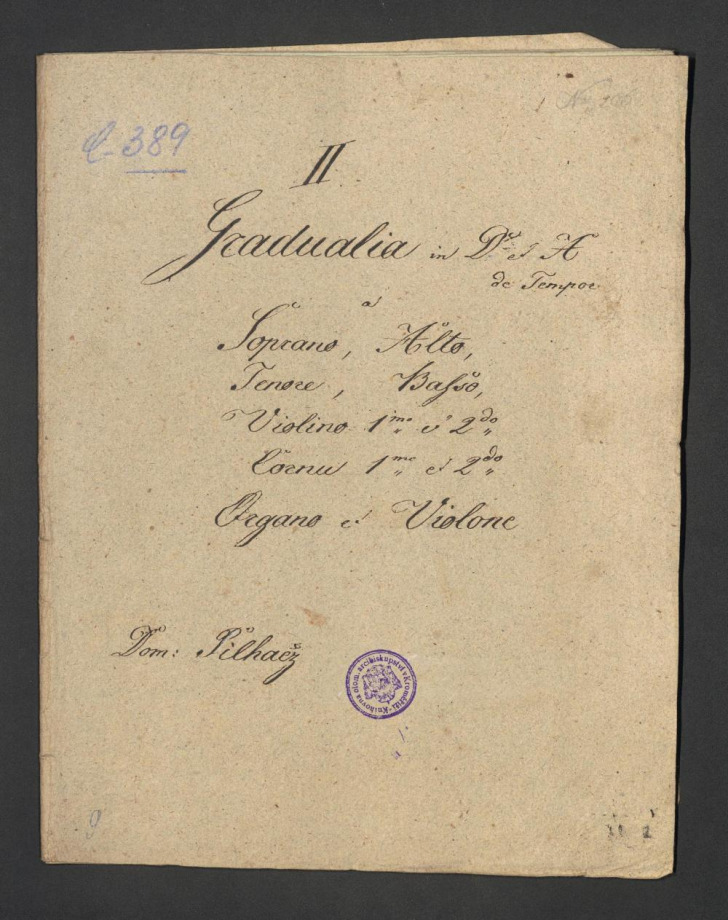 C 389
II
Gradualia in D# et A
de Tempore
a
Soprano, Alto,
Tenore, Basso,
Violino 1mo et 2do
Cornu 1mo et 2do
Organo et Violone
Dom: Pilhacz
Knihovna olom. arcibiskupství v Kroměříži
9